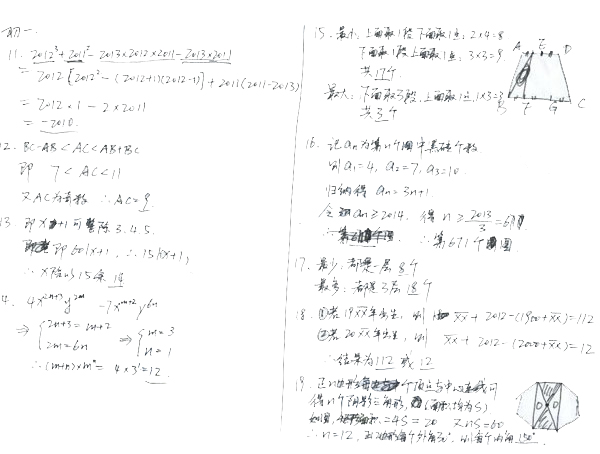 期一.
11. 2012³+2011²-2013×2012×2011-2013×2011
= 2012[2012²-(2012+1)(2012-1)]+2011(2011-2013)
= 2012×1-2×2011
= -2010.
12. BC-AB<AC<AB+BC
即 7<AC<11
又AC为奇数 ∴AC=9.
13. 即x+1可整除3.4.5.
即60|x+1, ∴15|(x+1),
∴x除以15余14
14. 4x²ⁿ⁺³y²ᵐ -7xᵐ⁺²y⁶ⁿ
⇒ {2n+3=m+2 2m=6n ⇒ {m=3 n=1
∴(m+n)×mⁿ = 4×3¹=12.
15. 最小: 上面取1段下面取1点: 2×4=8
下面取1段上面取1点: 3×3=9
共17个.
最大: 下面取3段,上面取1点,1×3=3
共3个
A E D
B F G C
16. 记aₙ为第n个图中黑碴个数
则a₁=4, a₂=7, a₃=10.
归纳得 aₙ=3n+1.
令aₙ≥2014, 得 n≥2013/3=671
∴第671个图
17. 最少: 都是一层8个
最多: 都是3层18个
18. ①若19XX年出生, 则 XX+2012-(1900+XX)=112
②若20XX年出生, 则 XX+2012-(2000+XX)=12
∴结果为112或12
19. 正n边形每个顶点与中心连线可
得n个阴影三角形, (面积均为S)
如图, =4S=20 又nS=60
∴n=12, 正12边形每个外角30°, 则每个内角150°.